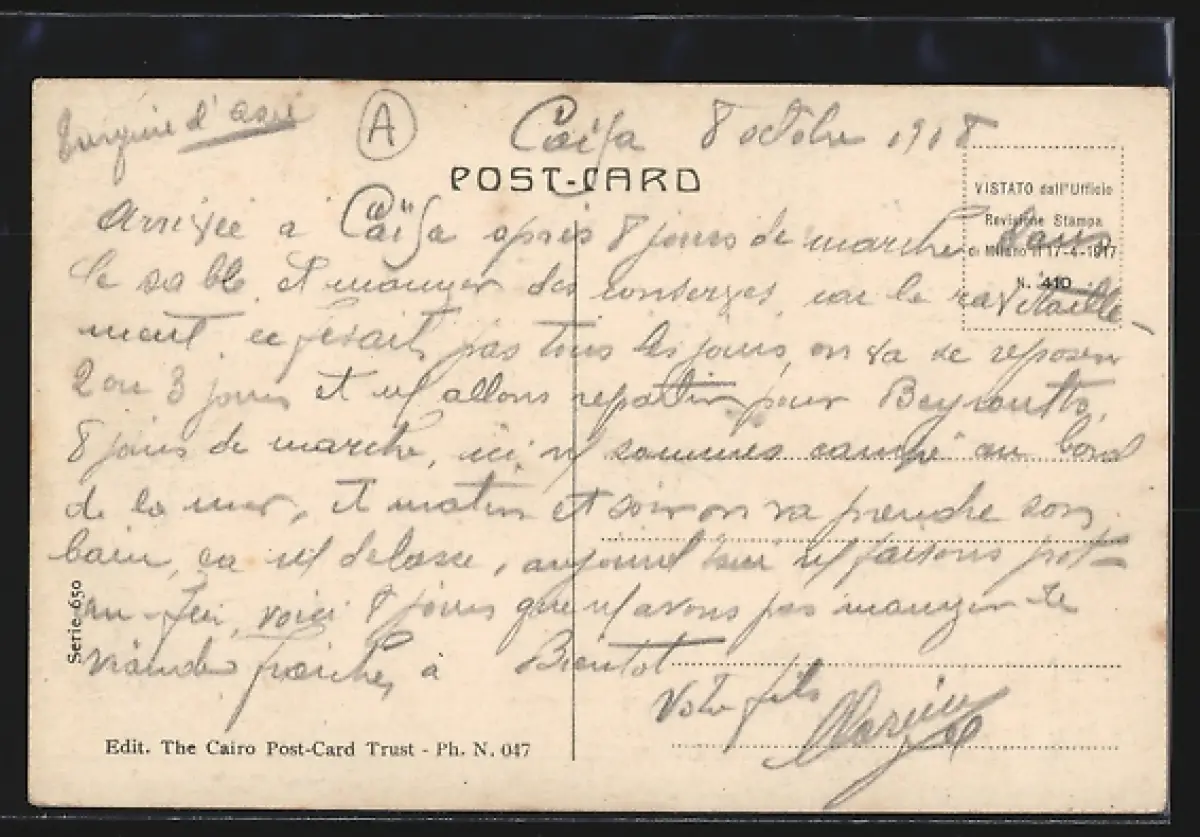 Turquie d'asie
A
Caïfa 8 octobre 1918
POST-CARD
VISTATO dall'Ufficio
Revisione Stampa
di Milano il 17-4-1917
N. 410
Arrivée a Caïfa après 8 jours de marche dans
le sable, et manger des conserves, car le ravitaille-
ment, ce fesait pas tous les jours, on va se reposer
2 ou 3 jours et n/ allons repartir pour Beyrouth,
8 jours de marche, ici n/ sommes campé au bord
de la mer, et matin et soir on va prendre son
bain, ca n/ delasse, aujourd'hui n/ faisons pot-
au-feu, voici 8 jours que n/ avons pas manger de
viande fraiche, à Bientot
Votre fils
Serie 650
Edit. The Cairo Post-Card Trust - Ph. N. 047